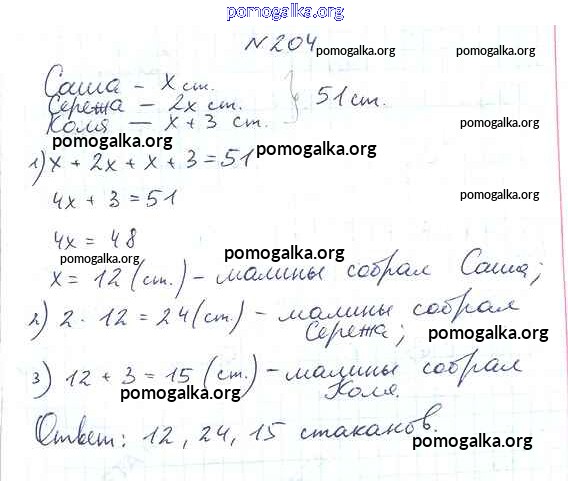 pomogalka.org
N 204 pomogalka.org pomogalka.org
Саша - x ст.
Сережа - 2x ст. } 51 ст.
Коля - x + 3 ст.
pomogalka.org pomogalka.org
1) x + 2x + x + 3 = 51 pomogalka.org
4x + 3 = 51 pomogalka.org
4x = 48
pomogalka.org pomogalka.org
x = 12 (ст.) - малины собрал Саша;
2) 2 · 12 = 24 (ст.) - малины собрал
Сережа; pomogalka.org
3) 12 + 3 = 15 (ст.) - малины собрал
pomogalka.org Коля.
Ответ: 12, 24, 15 стаканов.
pomogalka.org